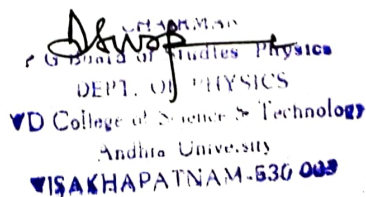 CHAIRMAN
P G Board of Studies Physics
DEPT. OF PHYSICS
VD College of Science & Technology
Andhra University
VISAKHAPATNAM-530 003